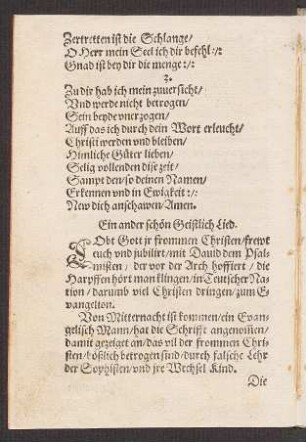 Zertretten ist die Schlange/
O Herr mein Seel ich dir befehl:/:
Gnad ist bey dir die menge:/:
3.
Zu dir hab ich mein zuuersicht/
Vnd werde nicht betrogen/
Sein beyde vnerzogen/
Auff das ich durch dein Wort erleucht/
Christi werden vnd bleiben/
Himliche Güter lieben/
Selig vollenden dise zeit/
Sampt den/so deinen Namen/
Erkennen vnd in Ewigkeit:/:
New dich anschawen/Amen.
Ein ander schön Geistlich Lied.
LObt Gott jr frommen Christen/frewt
euch vnd jubilirt/mit Dauid dem Psal-
misten/ der vor der Arch hoffiert/ die
Harpffen hört man klingen/in Teutscher Na-
tion/darumb viel Christen dringen/zum E-
uangelion.
Von Mitternacht ist kommen/ein Euan-
gelisch Mann/hat die Schrifft angenom̃en/
damit gezeiget an/das vil der frommen Chri-
sten/bößlich betrogen sind/durch falsche Lehr
der Sophisten/vnd jre Wechsel Kind.
Die